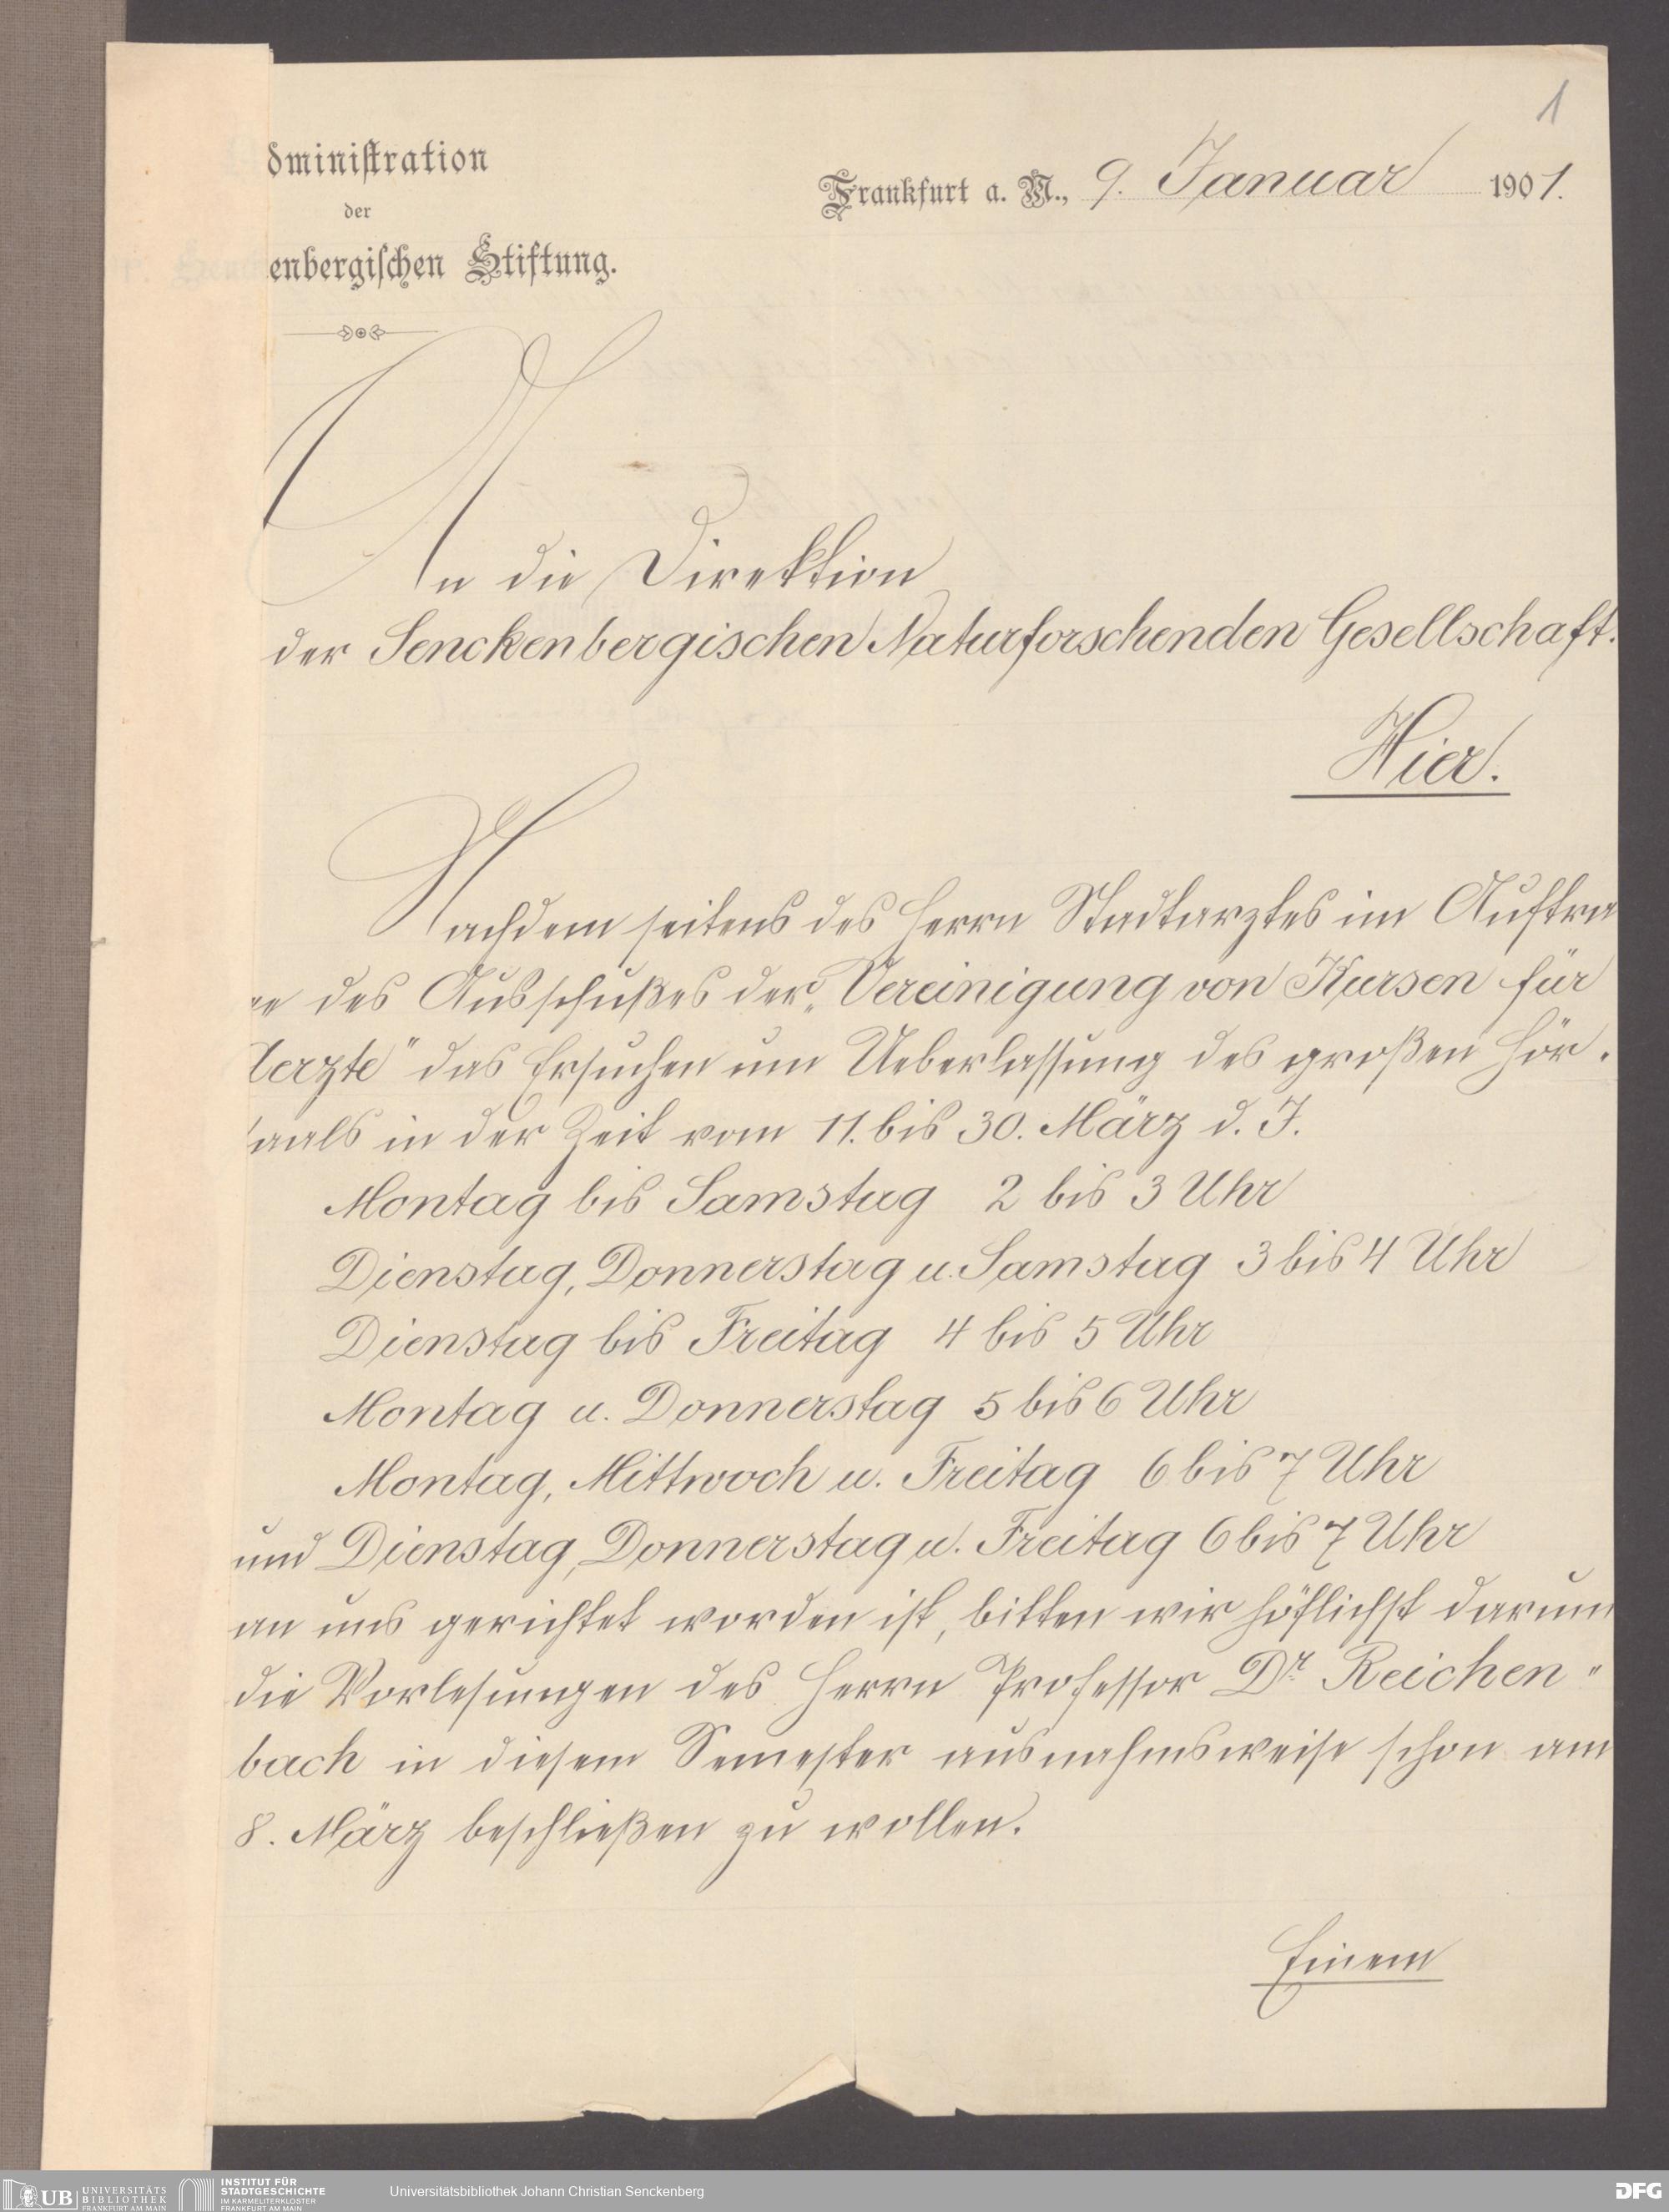 1
dministration
der
enbergischen Stiftung.
Frankfurt a. M., 9. Januar 1901.
An die Direktion
der Senckenbergischen Naturforschenden Gesellschaft.
Hier.
Nachdem seitens des Herrn Stadtarztes im Auftra
ge des Ausschußes der „Vereinigung von Kursen für
Aerzte" das Ersuchen um Ueberlassung des großen Hör-
saals in der Zeit vom 11. bis 30. März d. J.
Montag bis Samstag 2 bis 3 Uhr
Dienstag, Donnerstag u. Samstag 3 bis 4 Uhr
Dienstag bis Freitag 4 bis 5 Uhr
Montag u. Donnerstag 5 bis 6 Uhr
Montag, Mittwoch u. Freitag 6 bis 7 Uhr
und Dienstag, Donnerstag u. Freitag 6 bis 7 Uhr
an uns gerichtet worden ist, bitten wir höflichst darum
die Vorlesungen des Herrn Professor Dr. Reichen"
bach in diesem Semester ausnahmsweise schon am
8. März beschließen zu wollen.
Einem
UB UNIVERSITÄTS BIBLIOTHEK FRANKFURT AM MAIN
INSTITUT FÜR STADTGESCHICHTE IM KARMELITERKLOSTER FRANKFURT AM MAIN
Universitätsbibliothek Johann Christian Senckenberg
DFG